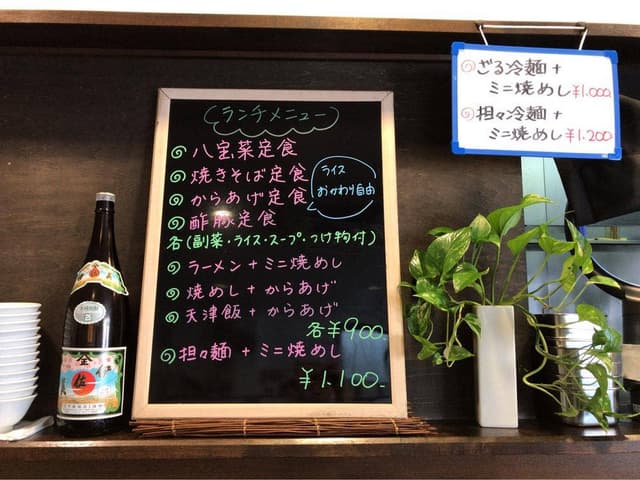 (ランチメニュー)
◎ 八宝菜定食
◎ 焼きそば定食
◎ からあげ定食
ライス
おかわり自由
◎ 酢豚定食
各(副菜・ライス・スープ・つけ物付)
◎ ラーメン + ミニ焼めし
◎ 焼めし + からあげ
◎ 天津飯 + からあげ
各¥900
◎ 担々麺 + ミニ焼めし
¥1.100
◎ ざる冷麺 +
ミニ焼めし ¥1.000
◎ 担々冷麺 +
ミニ焼めし ¥1.200